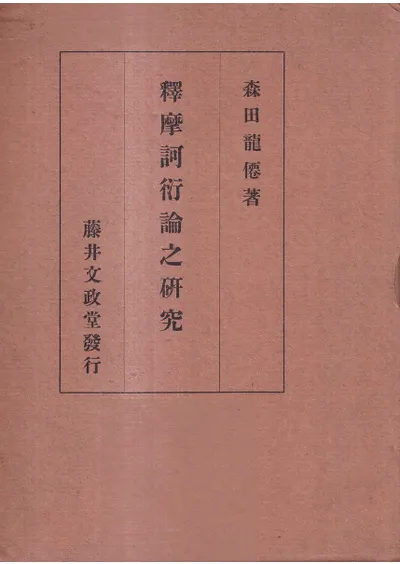 森田龍僊著
釋摩訶衍論之研究
藤井文政堂發行